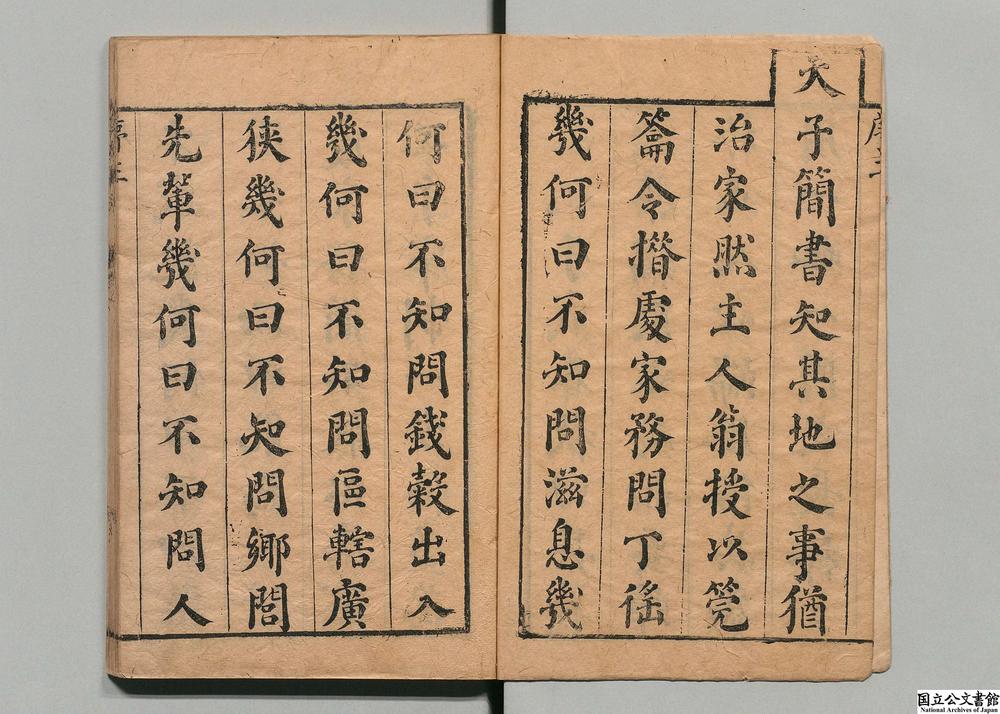 天子簡書知其地之事猶
治家然主人翁授以筦
籥令揩處家務問丁徭
幾何曰不知問滋息幾
何曰不知問錢穀出入
幾何曰不知問區轄廣
狹幾何曰不知問鄉閭
先輩幾何曰不知問人
国立公文書館
National Archives of Japan